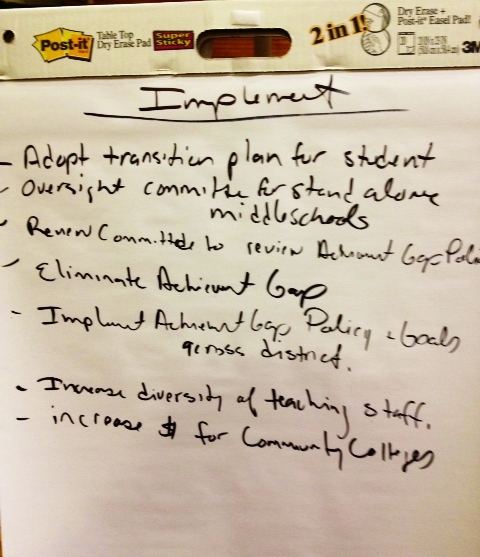 Post-it
Table Top
Dry Erase Pad
Super
Sticky
2 in 1!
Dry Erase +
Post-it Easel Pad!
3M
Implement
- Adopt transition plan for student
- Oversight committee for stand alone
middle schools
- Renew Committee to review Achievment Gap Poli
- Eliminate Achievment Gap
- Implment Achievment Gap Policy + Goals
across district.
- Increase diversity of teaching staff.
- increase $ for Community Colleges